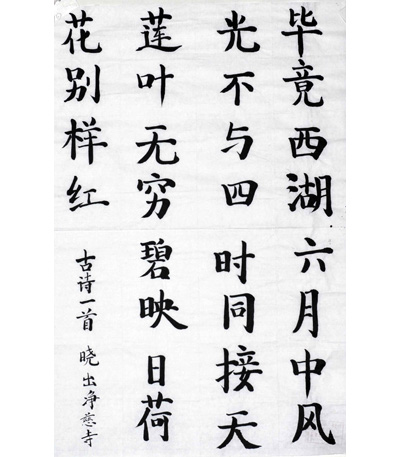 毕竟西湖六月中风
光不与四时同接天
莲叶无穷碧映日荷
花别样红
古诗一首 晓出净慈寺